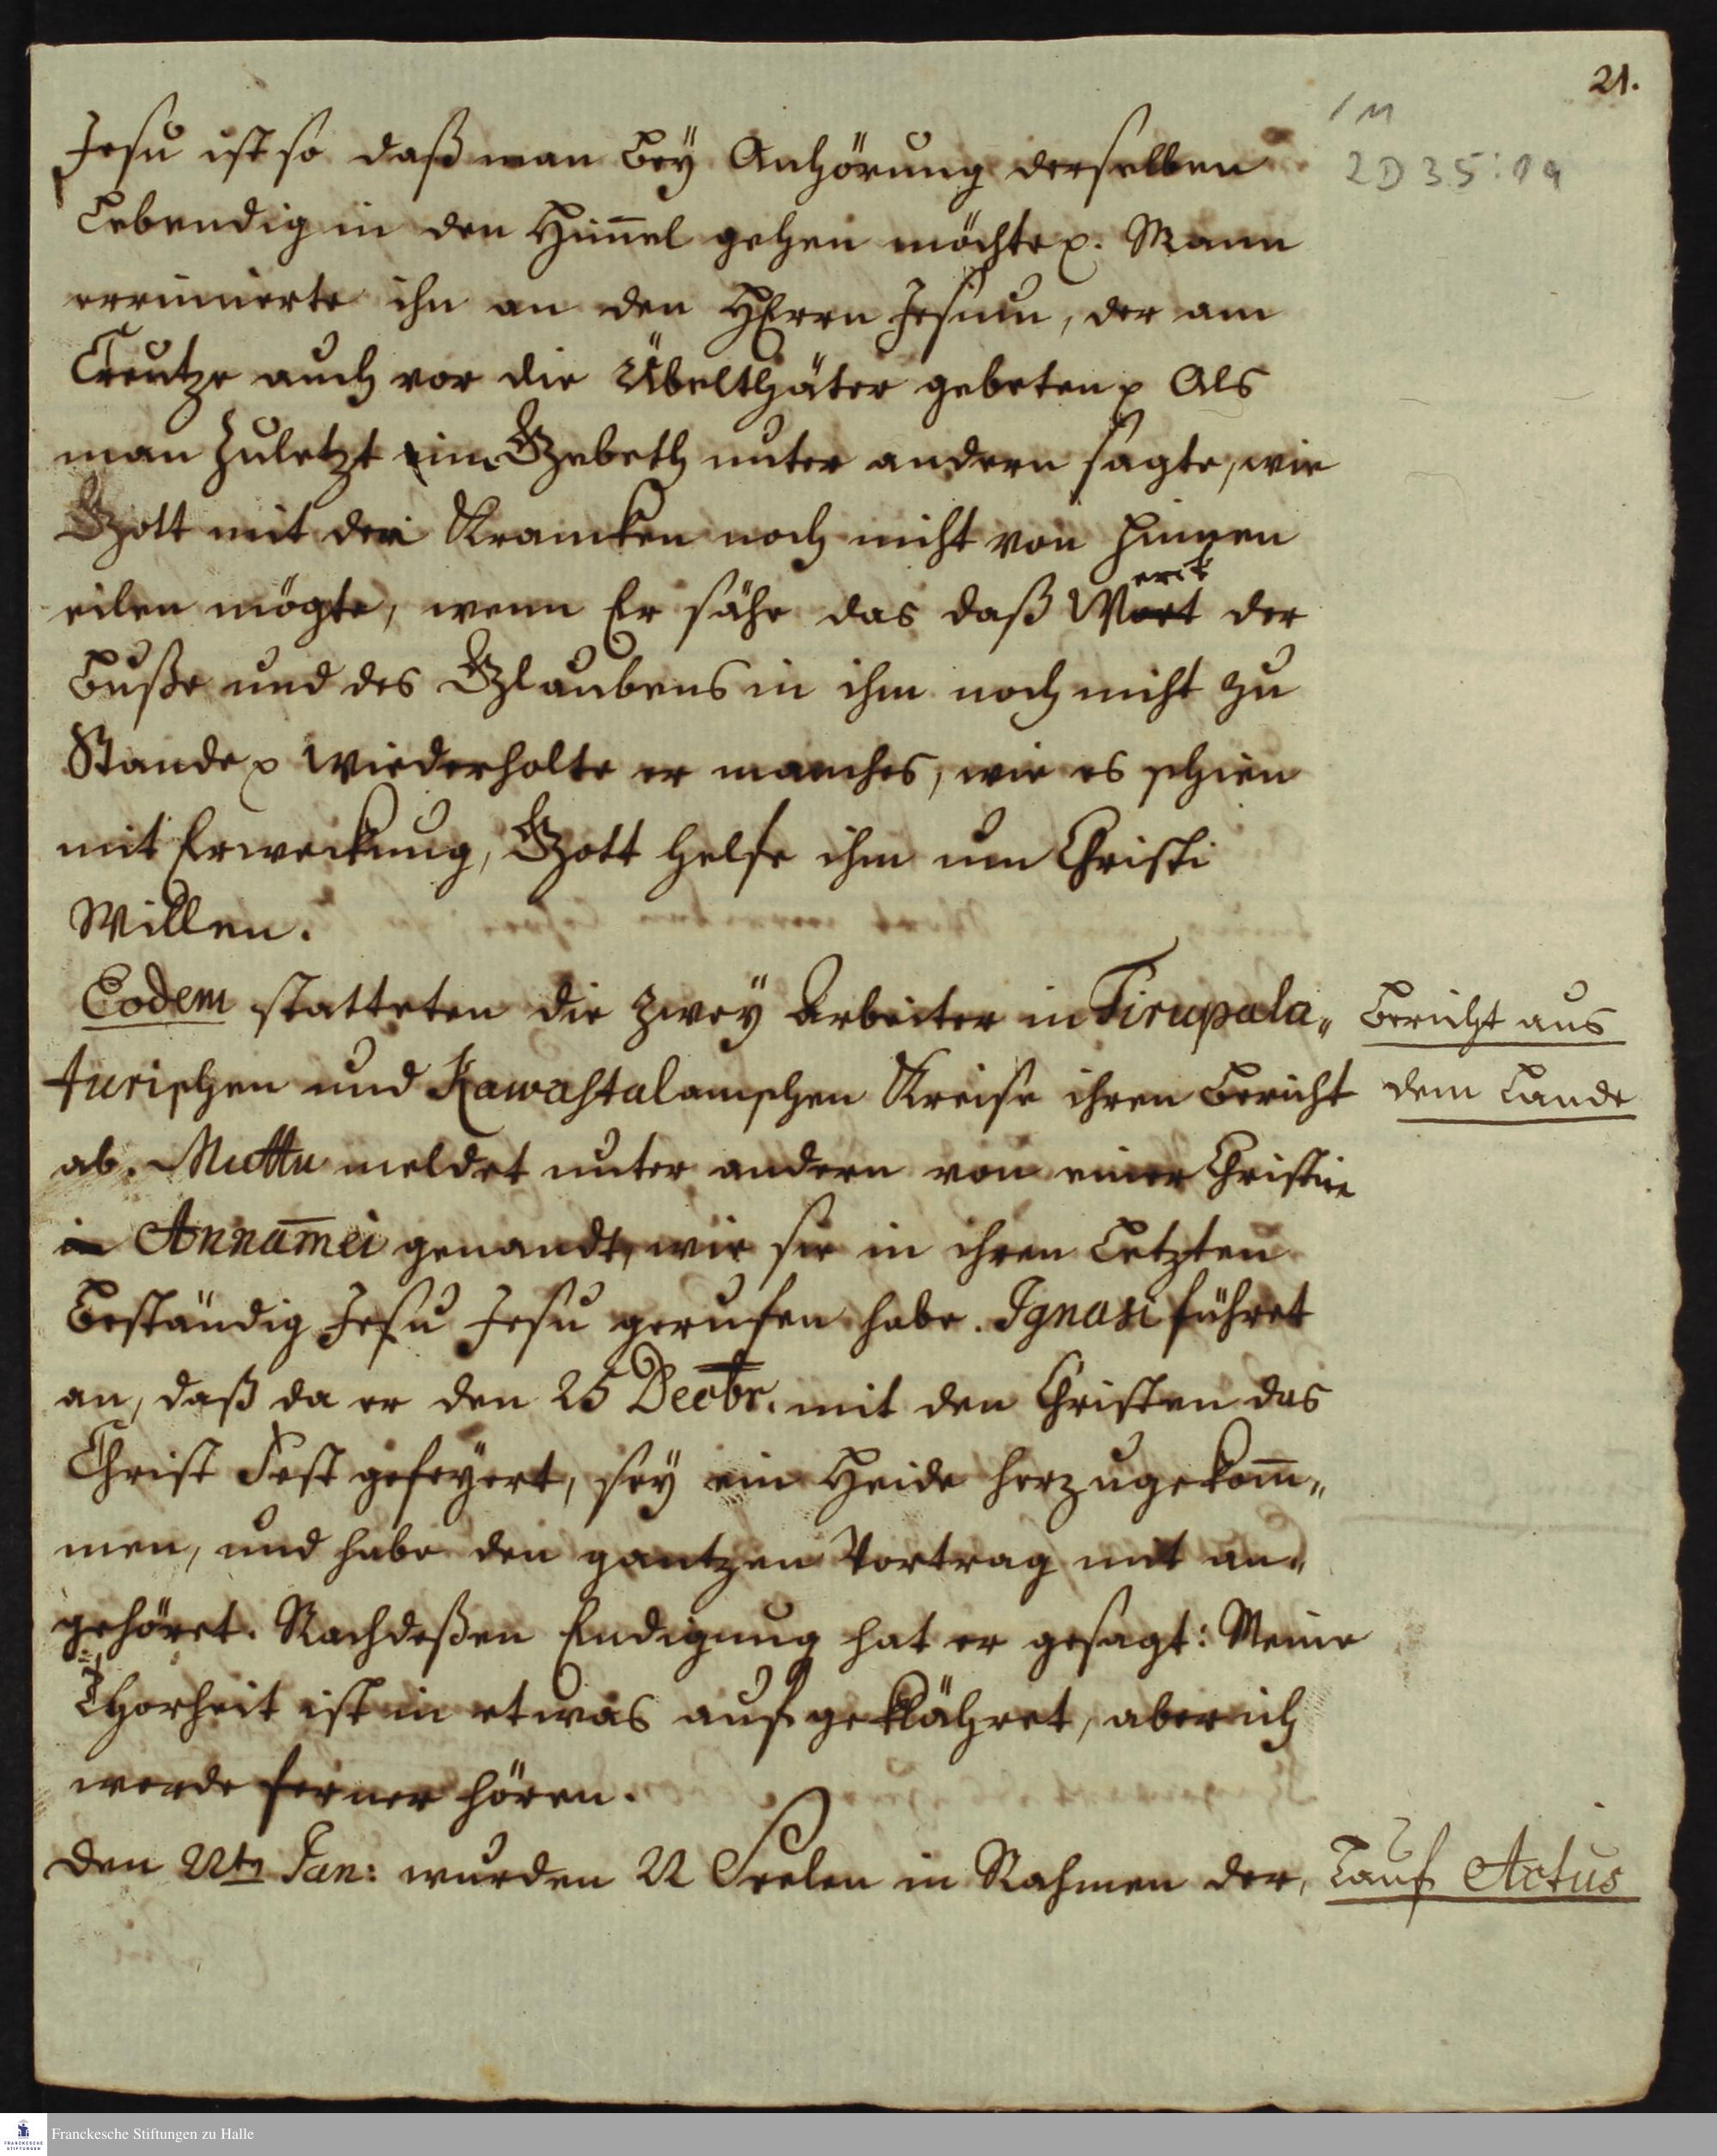 21.
1 M
2 D 35:19
Jesu ist so daß man bey Anhörung derselben
Lebendig in den Him̄el gehen möchte p. Mann
errinnerte ihn an den HErrn Jesum, der am
Creutze auch vor die Übelthäter gebeten p Als
man zuletzt im Gebeth unter andern sagte, wie
Gott mit den Krancken noch nicht von hinnen
eilen mögte, wenn Er sähe das daß Werck der
Buße und des Glaubens in ihm noch nicht zu
Stande p wiederholte er manches, wie es schien
mit Erweckung, Gott helfe ihm um Christi
Willen.
Eodem statteten die zwey Arbeiter in Tirupala„
turischen und Kawastalamschen Kreise ihren Bericht
Bericht aus
dem Lande
ab. Muttu meldet unter andern von einer Christin
Annam̄ei genandt, wie sie in ihren Letzten
Beständig Jesu Jesu gerufen habe. Ignasi führet
an, daß da er den 25 Decbr. mit den Christen das
Christ Fest gefeyert, sey ein Heide herzugekom̄„
men, und habe den gantzen Vortrag mit an„
gehöret. Nachdeßen Endigung hat er gesagt: Meine
Thorheit ist in etwas aufgeklähret, aber ich
werde ferner hören.
Den 22tn Jan: wurden 22 Seelen in Nahmen der,
Tauf Actus
Franckesche Stiftungen zu Halle